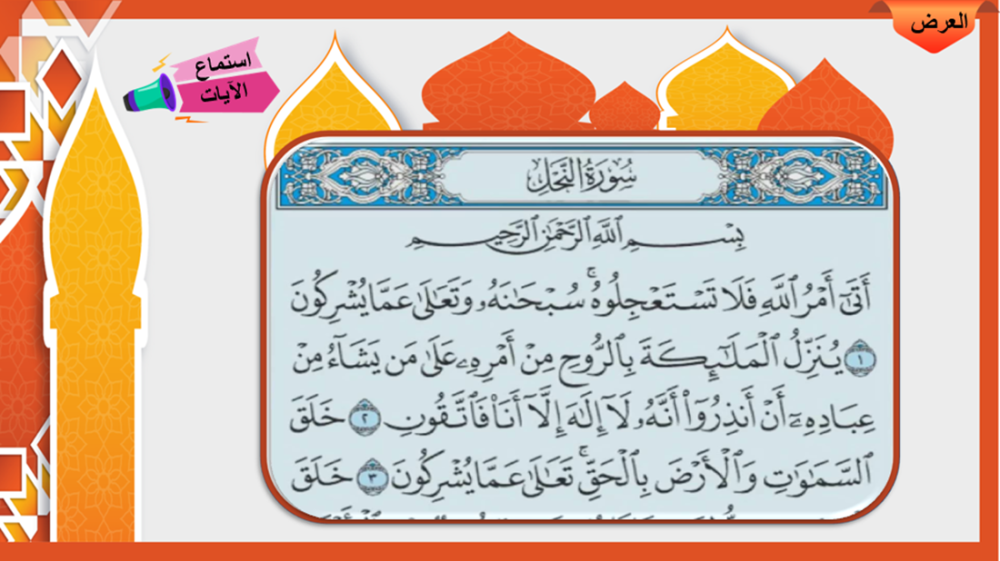 العرض
استماع
الآيات
سُورَةُ النَّحْلِ
بِسْمِ ٱللَّهِ ٱلرَّحْمَٰنِ ٱلرَّحِيمِ
أَتَىٰٓ أَمْرُ ٱللَّهِ فَلَا تَسْتَعْجِلُوهُۚ سُبْحَٰنَهُۥ وَتَعَٰلَىٰ عَمَّا يُشْرِكُونَ
١ يُنَزِّلُ ٱلْمَلَٰٓئِكَةَ بِٱلرُّوحِ مِنْ أَمْرِهِۦ عَلَىٰ مَن يَشَآءُ مِنْ
عِبَادِهِۦٓ أَنْ أَنذِرُوٓا۟ أَنَّهُۥ لَآ إِلَٰهَ إِلَّآ أَنَا۠ فَٱتَّقُونِ ٢ خَلَقَ
ٱلسَّمَٰوَٰتِ وَٱلْأَرْضَ بِٱلْحَقِّۚ تَعَٰلَىٰ عَمَّا يُشْرِكُونَ ٣ خَلَقَ